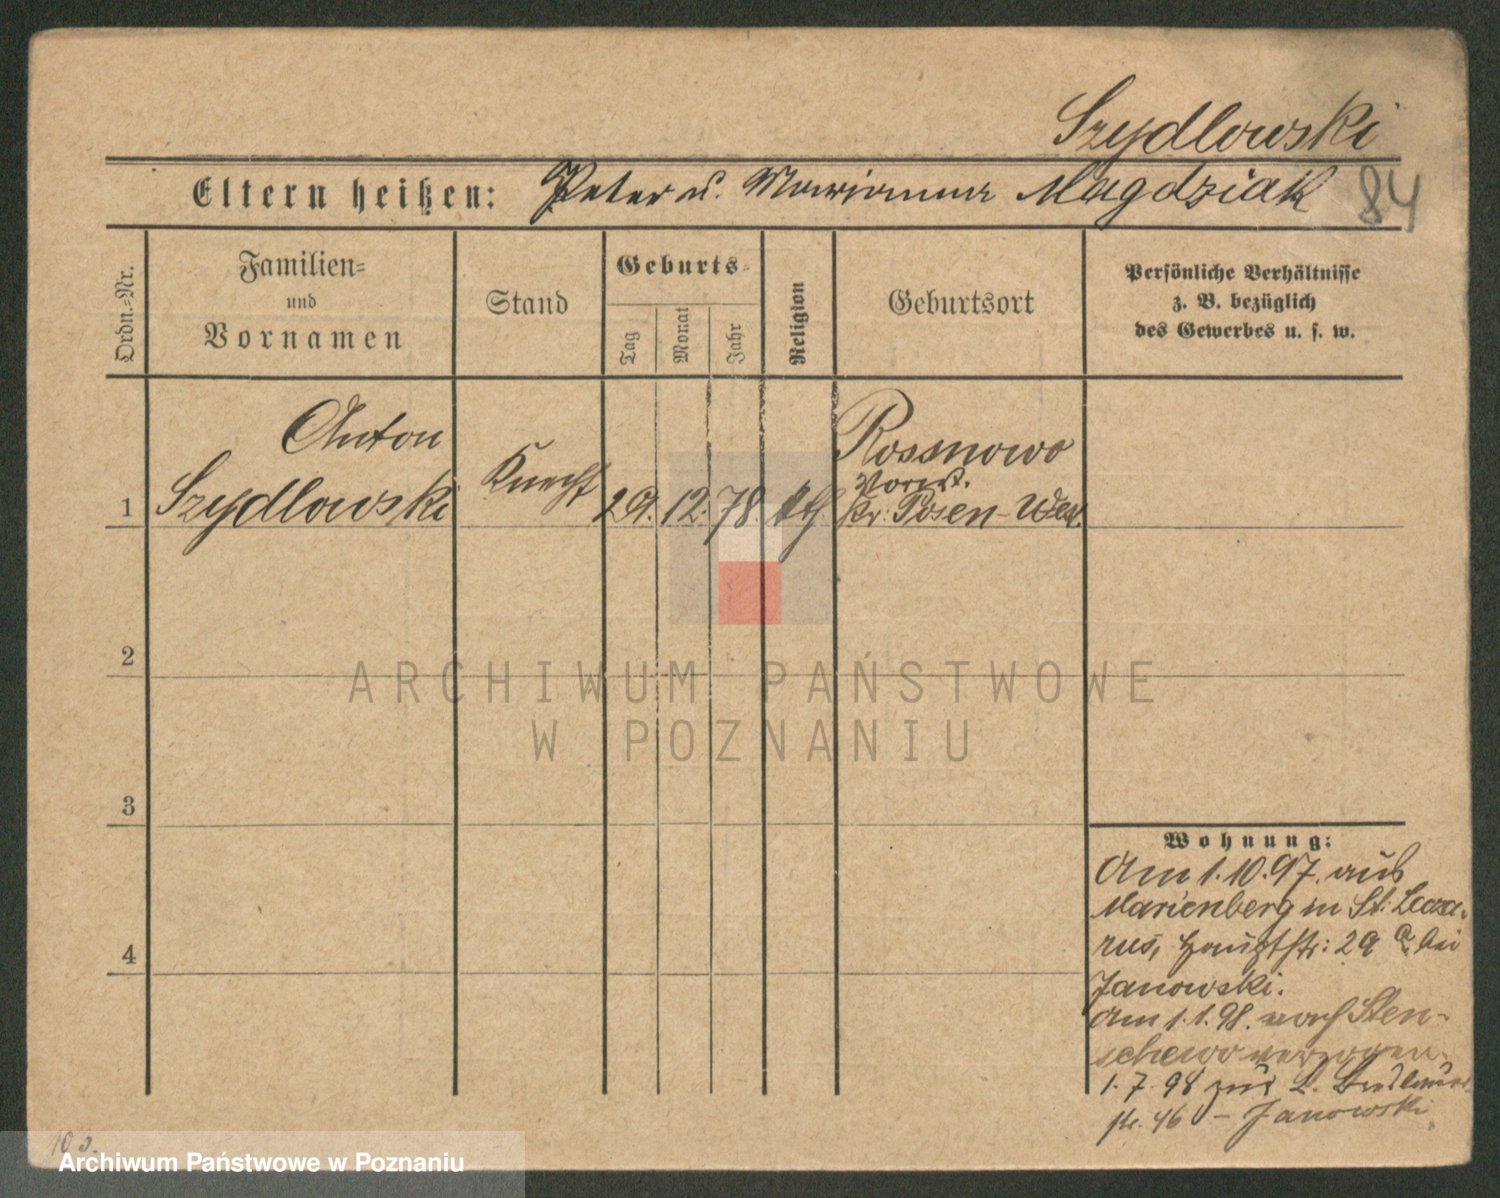 Szydlowski
Eltern heißen: Peter u. Marianna Magdziak 84
Ordn.-Nr.
Familien-
und
Vornamen
Stand
Geburts-
Tag
Monat
Jahr
Religion
Geburtsort
Persönliche Verhältnisse
z. B. bezüglich
des Gewerbes u. s. w.
Anton
1 Szydlowski Knecht 29. 12. 78. kth
Rossnowo
Vorw.
Kr: Posen-West
2
ARCHIWUM PAŃSTWOWE
W POZNANIU
3
4
Wohnung:
Am 1.10.97. aus
Marienberg in St: Laza-
rus, Hauptstr: 29 a bei
Janowski.
Am 1.1.98. nach Sten-
schewo verzogen.
1.7.98 zur L.
str. 46 - Janowski
Archiwum Państwowe w Poznaniu